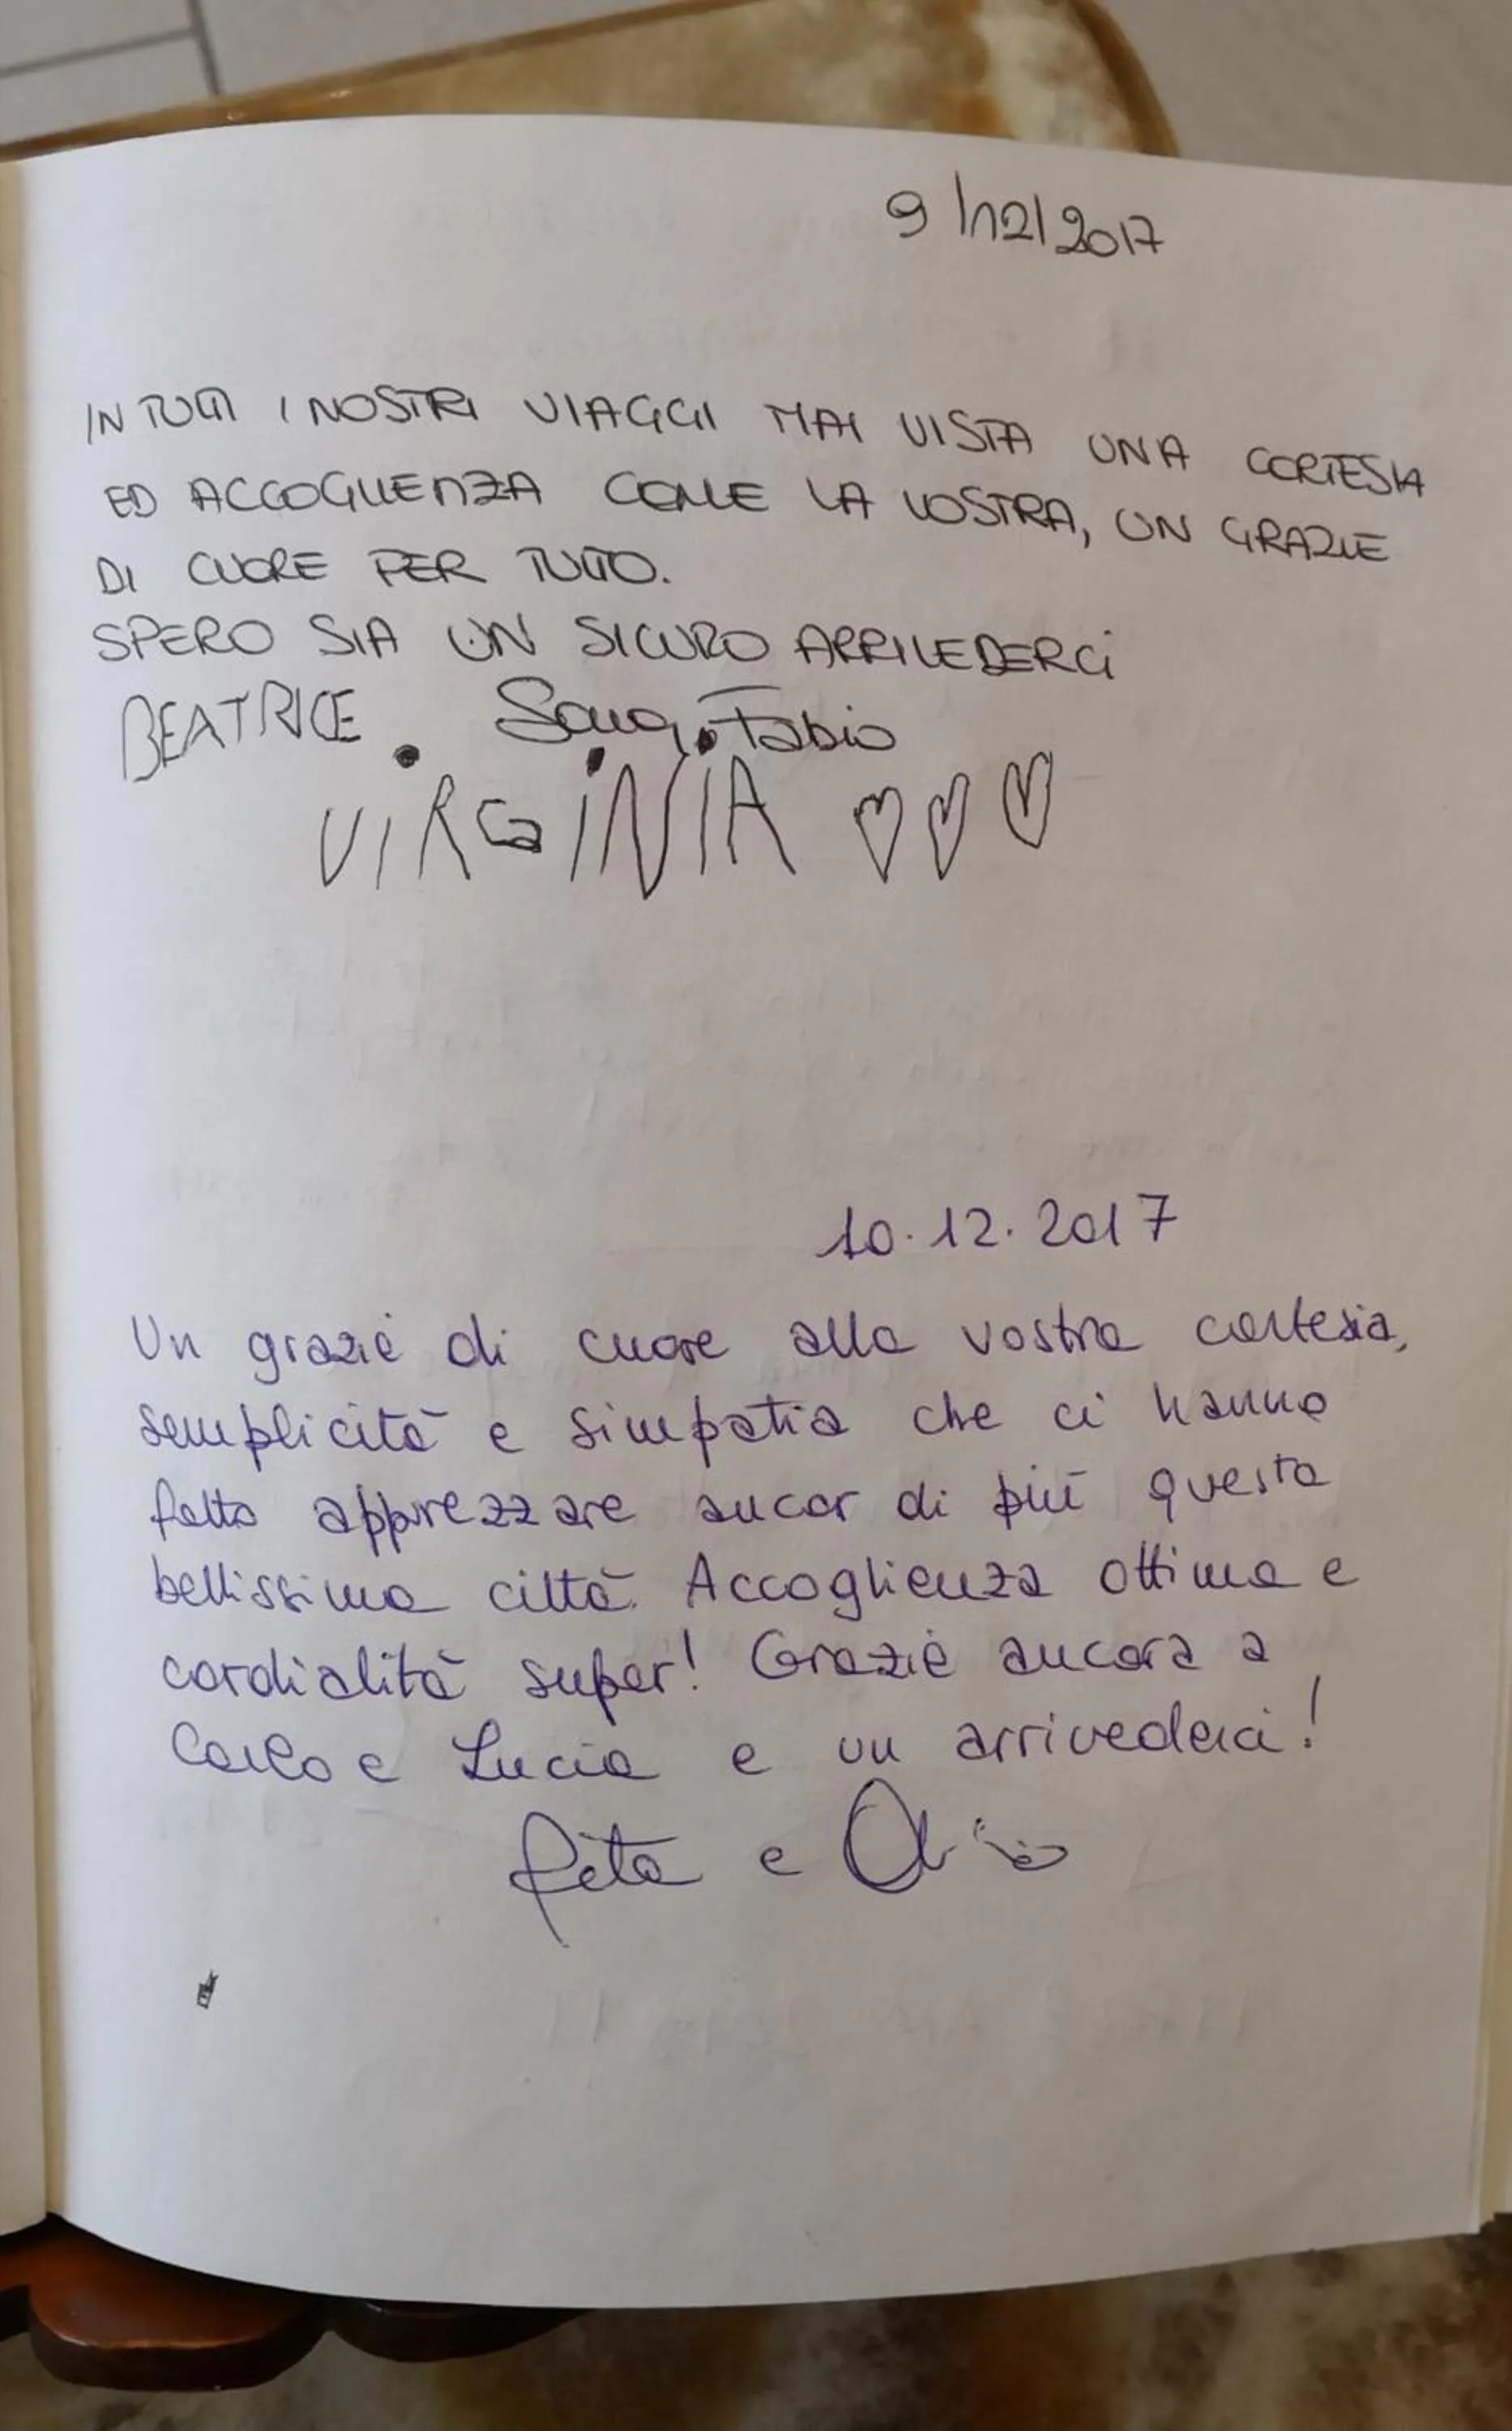 9/12/2017
IN TUTTI I NOSTRI VIAGGI MAI VISTA UNA CORTESIA
ED ACCOGLIENZA COME LA VOSTRA, UN GRAZIE
DI CUORE PER TUTTO.
SPERO SIA UN SICURO ARRIVEDERCI
BEATRICE. Fabio
VIRGINIA ♡♡♡
10.12.2017
Un grazie di cuore alla vostra cortesia,
semplicità e simpatia che ci hanno
fatto apprezzare ancor di più questa
bellissima città. Accoglienza ottima e
cordialità super! Grazie ancora a
Carlo e Lucia e un arrivederci!
Rita e